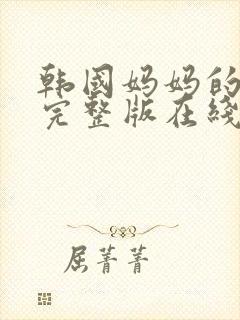 韩国妈妈的
完整版在线
屈菁菁